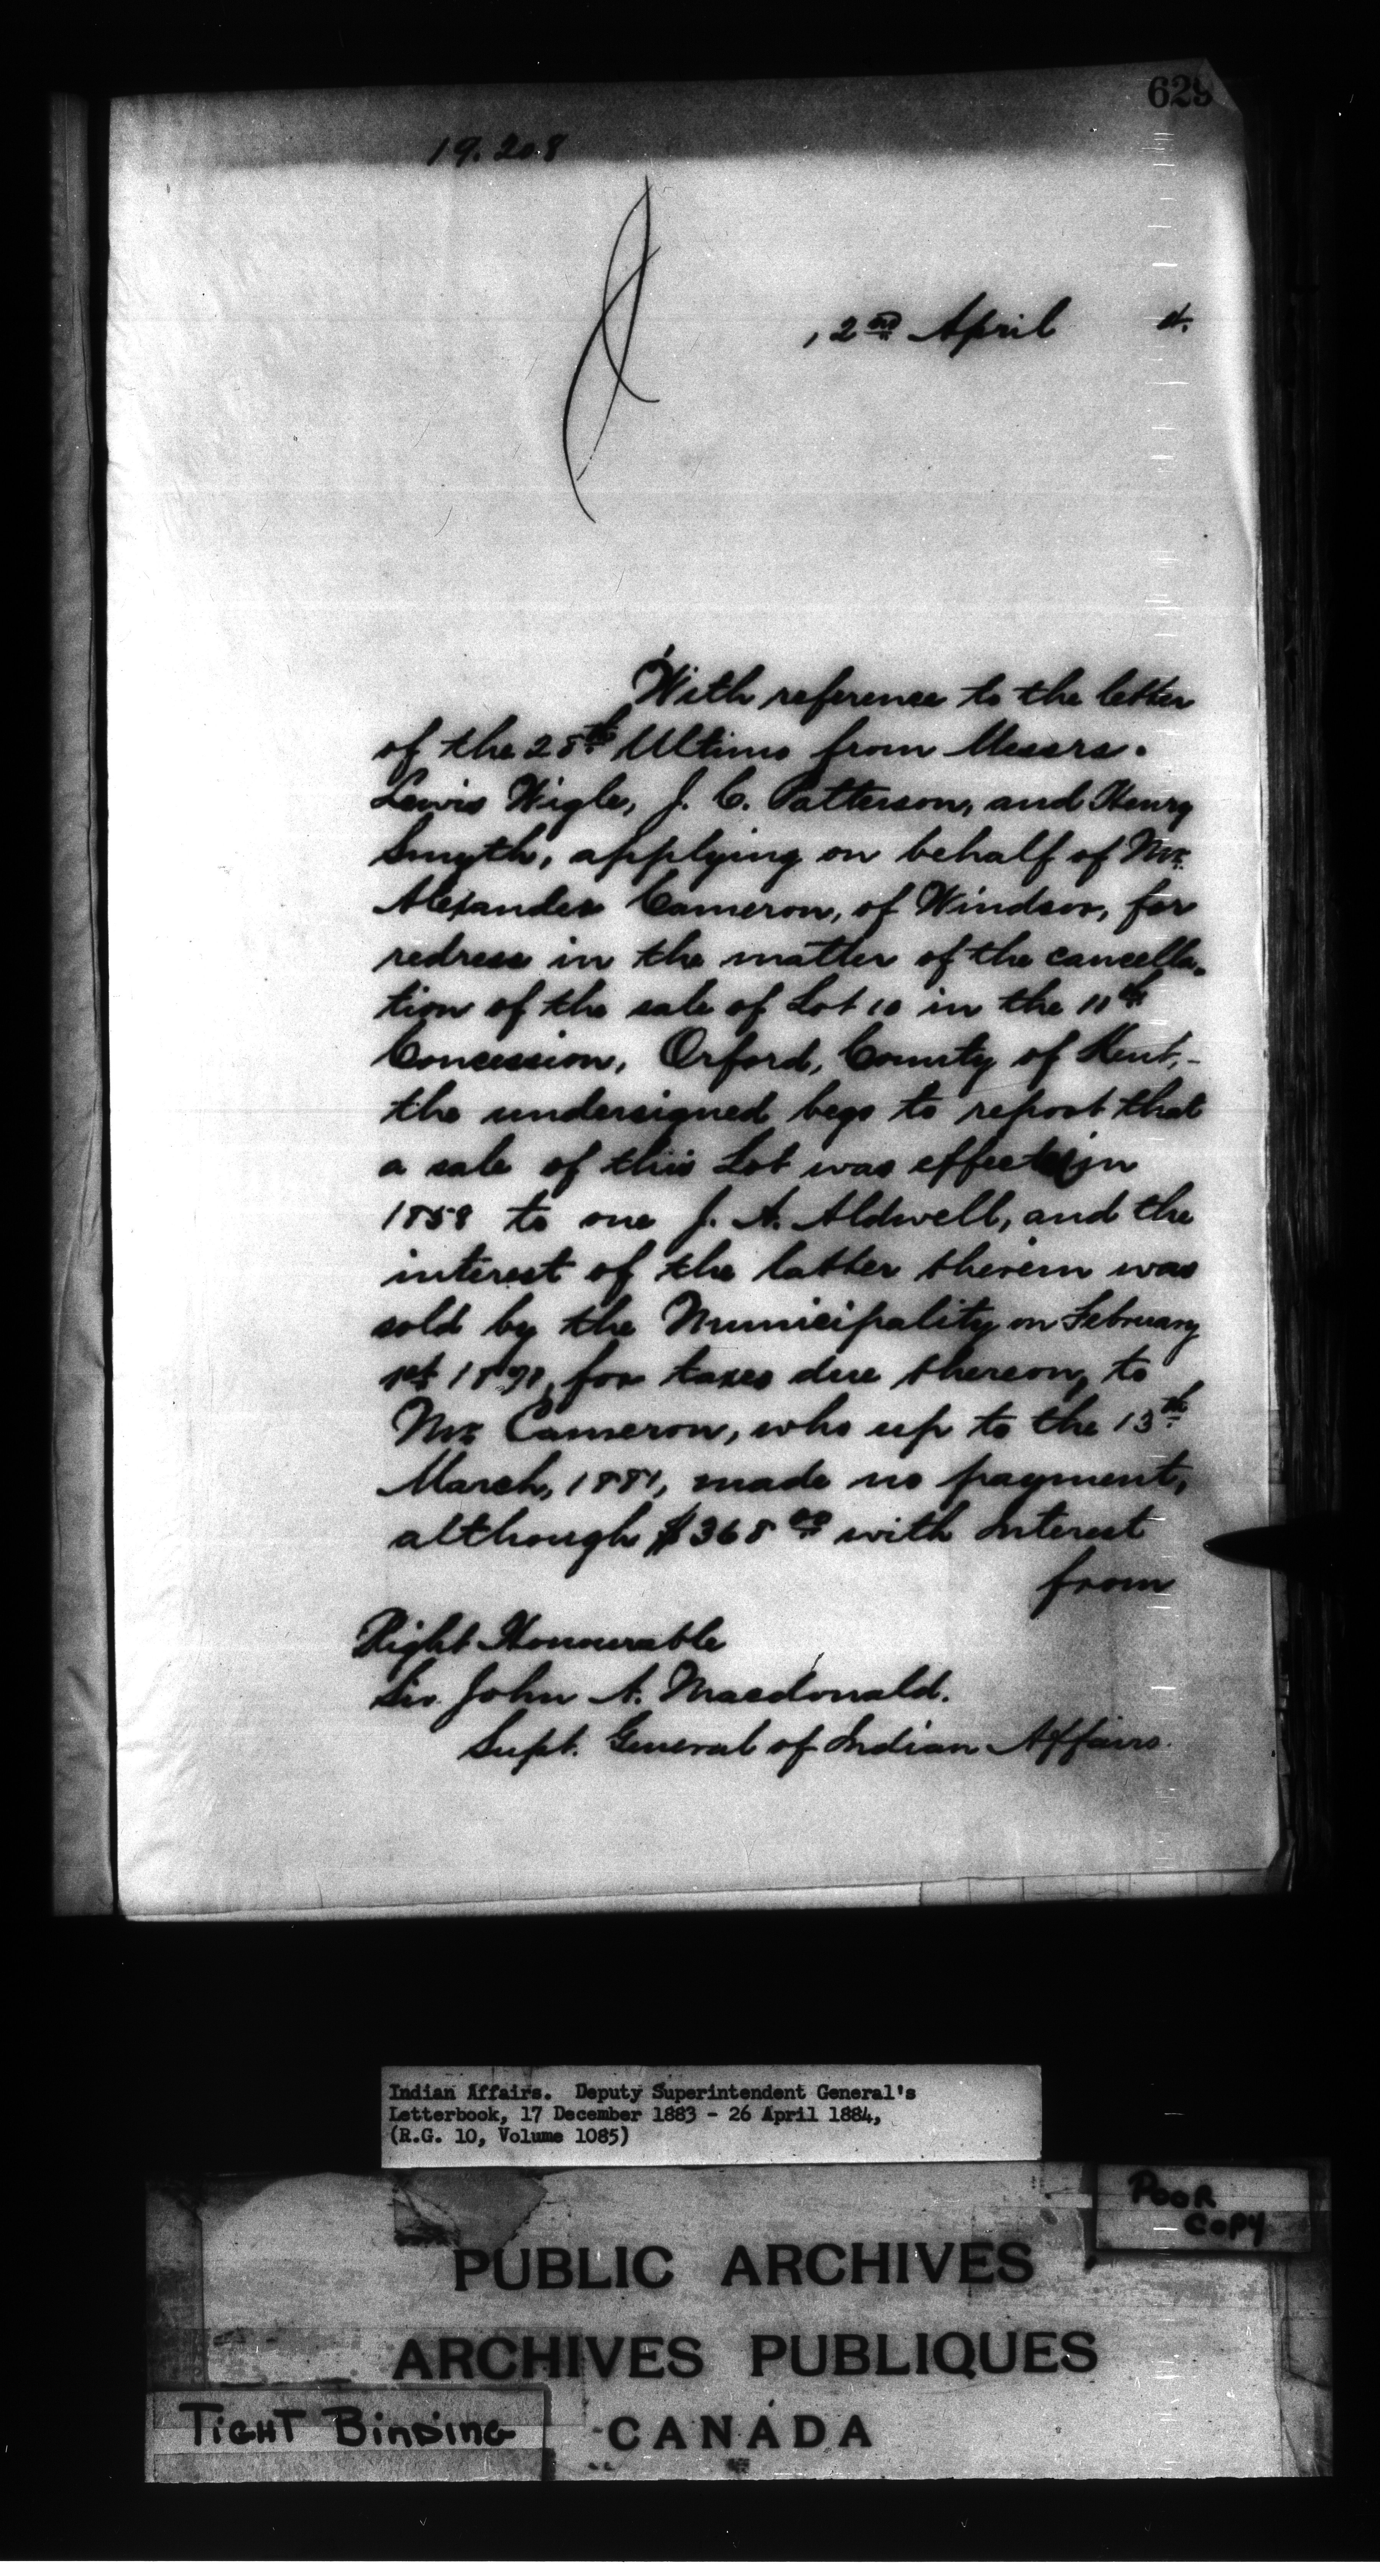 629
19.208
, 2nd April 4.
With reference to the letter
of the 28th Ultimo from Messrs.
Lewis Wigle, J. C. Patterson, and Henry
Smyth, applying on behalf of Mr.
Alexander Cameron, of Windsor, for
redress in the matter of the cancella-
tion of the sale of Lot 10 in the 11th
Concession, Orford, County of Kent,-
the undersigned begs to report that
a sale of this Lot was effected in
1858 to one J. A. Aldwell, and the
interest of the latter therein was
sold by the Municipality on February
1st for taxes due thereon, to
Mr. Cameron, who up to the 13th
March, 1881, made no payment,
although $368 00 with Interest
from
Right Honourable
Sir John A. Macdonald.
Supt. General of Indian Affairs.
Indian Affairs. Deputy Superintendent General's
Letterbook, 17 December 1883 - 26 April 1884,
(R.G. 10, Volume 1085)
POOR
COPY
PUBLIC ARCHIVES
ARCHIVES PUBLIQUES
CANADA
TIGHT BINDING